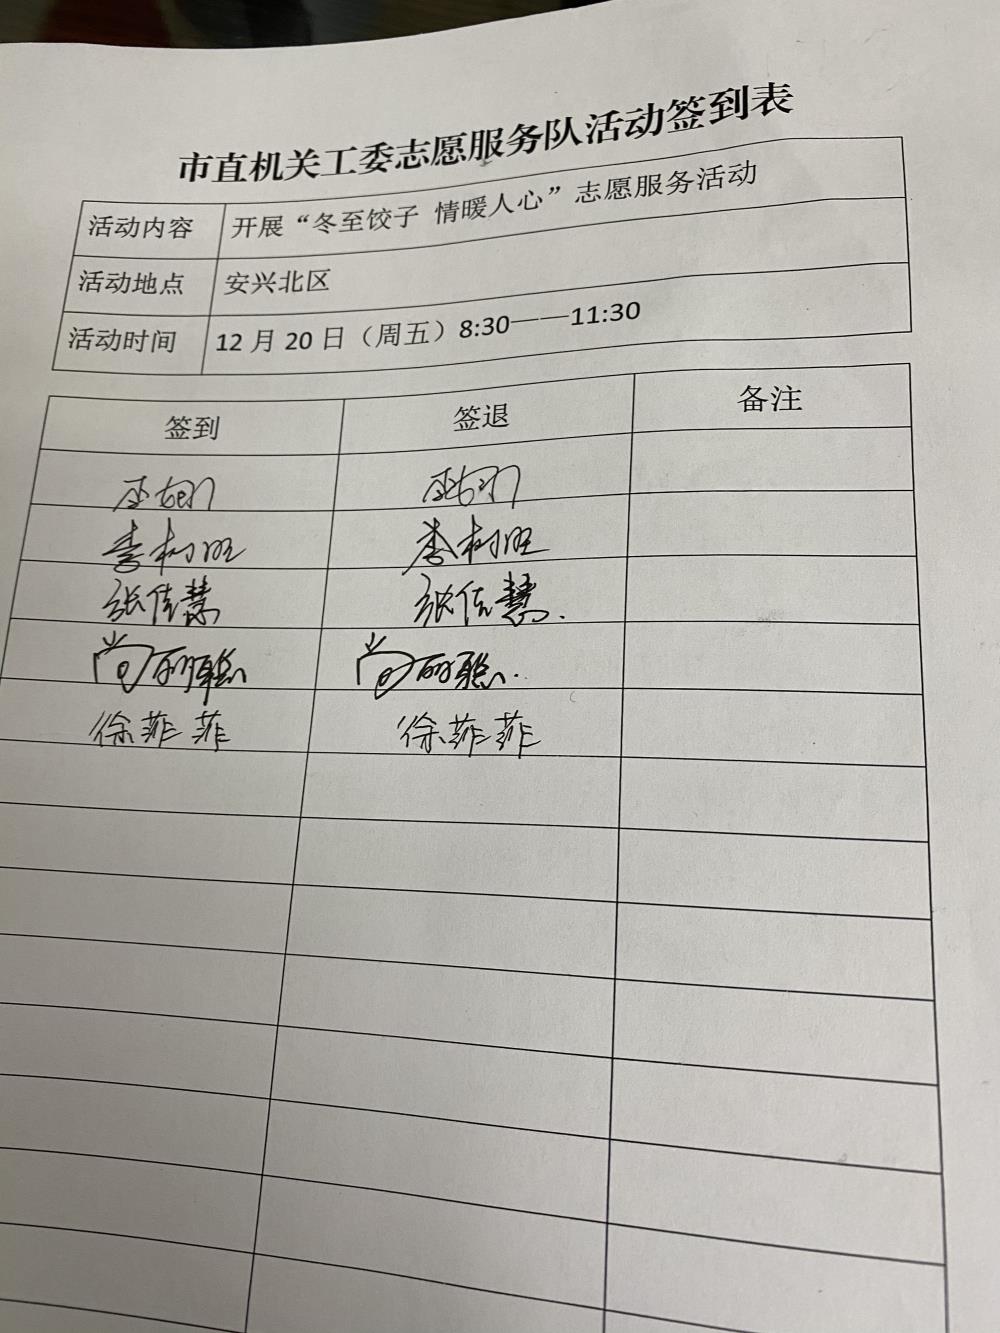 市直机关工委志愿服务队活动签到表
活动内容 开展“冬至饺子 情暖人心”志愿服务活动
活动地点 安兴北区
活动时间 12月20日（周五）8:30——11:30
签到 签退 备注
李树旺 李树旺
张佳慧 张佳慧.
尚 尚
徐菲菲 徐菲菲